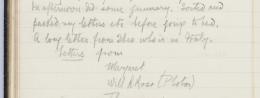 In afternoon did some summary. Sorted and
packed my letters etc before going to bed.
A long letter from Sheo who is in Italy.
Letters from
Margaret
Will A Ross (Photos)